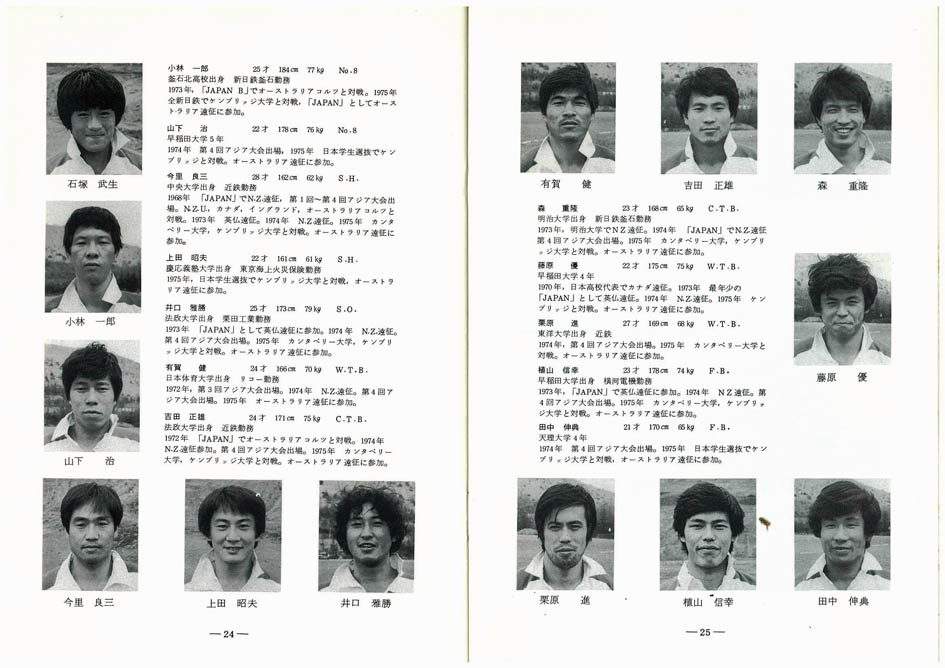 石塚　武生
小林　一郎
山下　　治
今里　良三
上田　昭夫
井口　雅勝
小林　一郎　25才　184cm　77kg　No.8
釜石北高校出身　新日鉄釜石勤務
1973年，「JAPAN B」でオーストラリアコルツと対戦。1975年
全新日鉄でケンブリッジ大学と対戦，「JAPAN」としてオース
トラリア遠征に参加。
山下　　治　22才　178cm　76kg　No.8
早稲田大学5年
1974年　第4回アジア大会出場，1975年　日本学生選抜でケン
ブリッジと対戦。オーストラリア遠征に参加。
今里　良三　28才　162cm　62kg　S.H.
中央大学出身　近鉄勤務
1968年　「JAPAN」でN.Z.遠征，第1回〜第4回アジア大会出
場。N.Z.U.，カナダ，イングランド，オーストラリアコルツと
対戦。1973年　英仏遠征。1974年　N.Z.遠征。1975年　カンタ
ベリー大学，ケンブリッジ大学と対戦。オーストラリア遠征に
参加。
上田　昭夫　22才　161cm　61kg　S.H.
慶応義塾大学出身　東京海上火災保険勤務
1975年，日本学生選抜でケンブリッジ大学と対戦，オーストラ
リア遠征に参加。
井口　雅勝　25才　173cm　79kg　S.O.
法政大学出身　栗田工業勤務
1973年　「JAPAN」として英仏遠征に参加。1974年　N.Z.遠征。
第4回アジア大会出場。1975年　カンタベリー大学，ケンブリ
ッジ大学と対戦。オーストラリア遠征に参加。
有賀　　健　24才　166cm　70kg　W.T.B.
日本体育大学出身　リコー勤務
1972年，第3回アジア大会出場。1974年　N.Z.遠征。第4回ア
ジア大会出場。1975年　オーストラリア遠征に参加。
吉田　正雄　24才　171cm　75kg　C.T.B.
法政大学出身　近鉄勤務
1972年　「JAPAN」でオーストラリアコルツと対戦。1974年
N.Z.遠征参加。第4回アジア大会出場。1975年　カンタベリー
大学，ケンブリッジ大学と対戦。オーストラリア遠征に参加。
—24—
有賀　　健
吉田　正雄
森　　重隆
森　　重隆　23才　168cm　65kg　C.T.B.
明治大学出身　新日鉄釜石勤務
1973年，明治大学でNZ遠征。1974年　「JAPAN」でN.Z.遠征
第4回アジア大会出場。1975年　カンタベリー大学，ケンブリ
ッジ大学と対戦。オーストラリア遠征に参加。
藤原　　優　22才　175cm　75kg　W.T.B.
早稲田大学4年
1970年，日本高校代表でカナダ遠征。1973年　最年少の
「JAPAN」として英仏遠征。1974年　N.Z.遠征。1975年　ケン
ブリッジ大学と対戦。オーストラリア遠征に参加。
栗原　　進　27才　169cm　68kg　W.T.B.
東洋大学出身　近鉄
1974年，第4回アジア大会出場。1975年　カンタベリー大学と
対戦。オーストラリア遠征に参加。
植山　信幸　23才　178cm　74kg　F.B.
早稲田大学出身　横河電機勤務
1973年　「JAPAN」で英仏遠征に参加。1974年　NZ遠征。第
4回アジア大会出場。1975年　カンタベリー大学，ケンブリッ
ジ大学と対戦。オーストラリア遠征に参加。
田中　伸典　21才　170cm　65kg　F.B.
天理大学4年
1974年　第4回アジア大会出場。1975年　日本学生選抜でケン
ブリッジ大学と対戦，オーストラリア遠征に参加。
藤原　　優
栗原　　進
植山　信幸
田中　伸典
—25—